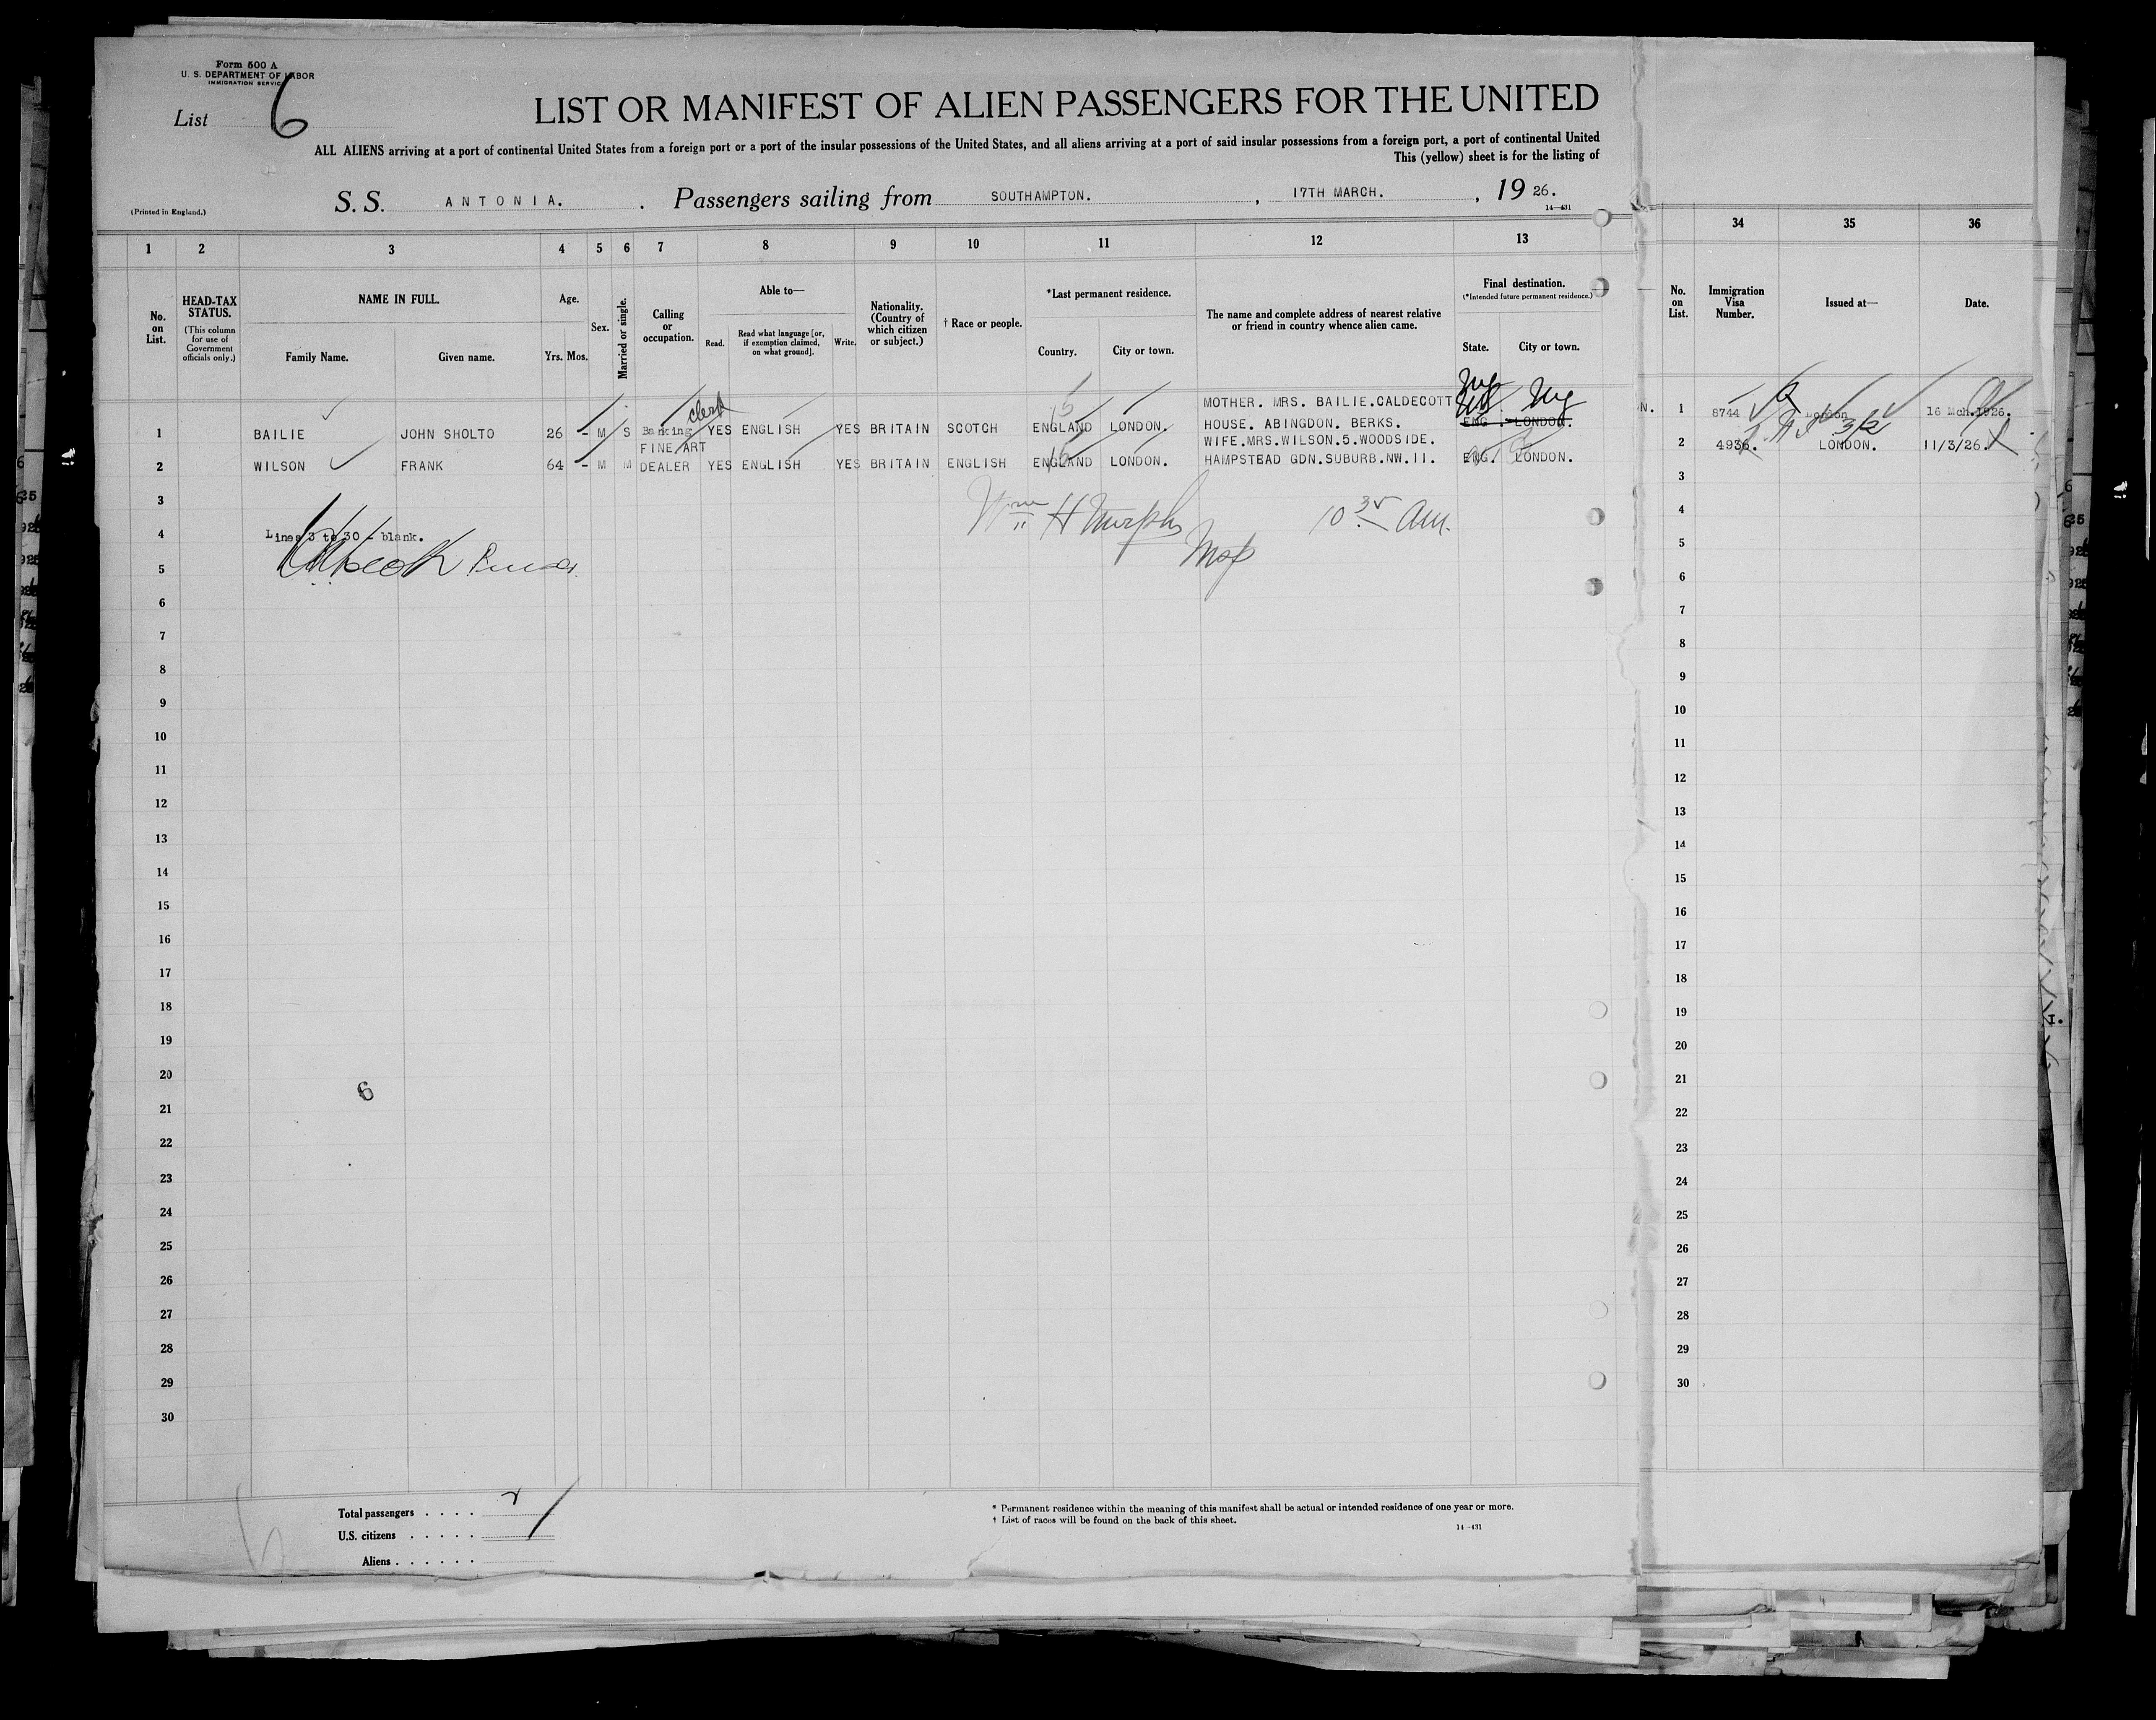 Form 500 A
U. S. DEPARTMENT OF LABOR
IMMIGRATION SERVICE
List 6
LIST OR MANIFEST OF ALIEN PASSENGERS FOR THE UNITED
ALL ALIENS arriving at a port of continental United States from a foreign port or a port of the insular possessions of the United States, and all aliens arriving at a port of said insular possessions from a foreign port, a port of continental United
This (yellow) sheet is for the listing of
(Printed in England.)
S. S. ANTONIA. Passengers sailing from SOUTHAMPTON. , 17TH MARCH. , 19 26.
14—431
1 2 3 4 5 6 7 8 9 10 11 12 13 34 35 36
No. on List.
HEAD-TAX STATUS.
(This column for use of Government officials only.)
NAME IN FULL.
Family Name. Given name.
Age.
Yrs. Mos.
Sex.
Married or single.
Calling or occupation.
Able to—
Read. Read what language [or, if exemption claimed, on what ground]. Write.
Nationality. (Country of which citizen or subject.)
† Race or people.
*Last permanent residence.
Country. City or town.
The name and complete address of nearest relative or friend in country whence alien came.
Final destination.
(*Intended future permanent residence.)
State. City or town.
No. on List.
Immigration Visa Number.
Issued at—
Date.
1 BAILIE JOHN SHOLTO 26 - M S Banking clerk YES ENGLISH YES BRITAIN SCOTCH ENGLAND LONDON. MOTHER. MRS. BAILIE.CALDECOTT HOUSE. ABINGDON. BERKS. ENG. LONDON. NY NY
1 8744 London 16 Mch.1926.
2 WILSON FRANK 64 - M M FINE ART DEALER YES ENGLISH YES BRITAIN ENGLISH ENGLAND LONDON. WIFE.MRS.WILSON.5.WOODSIDE. HAMPSTEAD GDN.SUBURB.NW.11. ENG. LONDON.
2 4936. LONDON. 11/3/26.
3
Wm H Murphy 10 35 am.
4 Lines 3 to 30 - blank.
5
6
7
8
9
10
11
12
13
14
15
16
17
18
19
20
6
21
22
23
24
25
26
27
28
29
30
3
4
5
6
7
8
9
10
11
12
13
14
15
16
17
18
19
20
21
22
23
24
25
26
27
28
29
30
Total passengers . . . . 2
U.S. citizens . . . . .
Aliens . . . . . .
* Permanent residence within the meaning of this manifest shall be actual or intended residence of one year or more.
† List of races will be found on the back of this sheet.
14—431